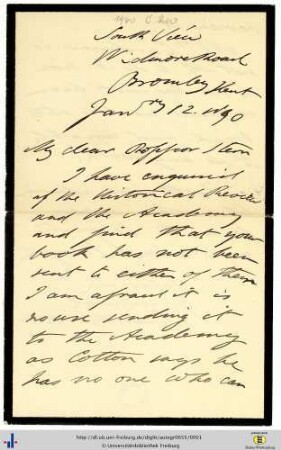 South View
Widmore Road
Bromley Kent
Jan.ry 12. 1890
My dear Professor Stern
I have enquired
of the Historical Review
and the Academy
and find that your
book has not been
sent to either of them
I am afraid it is
no use sending it
to the Academy
as Cotton says he
has no one who can
http://dl.ub.uni-freiburg.de/diglit/autogr0655/0001
© Universitätsbibliothek Freiburg